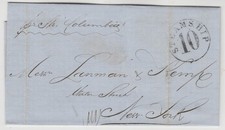 pr Str. Columbia
STEAMSHIP
10
Messrs Lanman & Kemp
New York